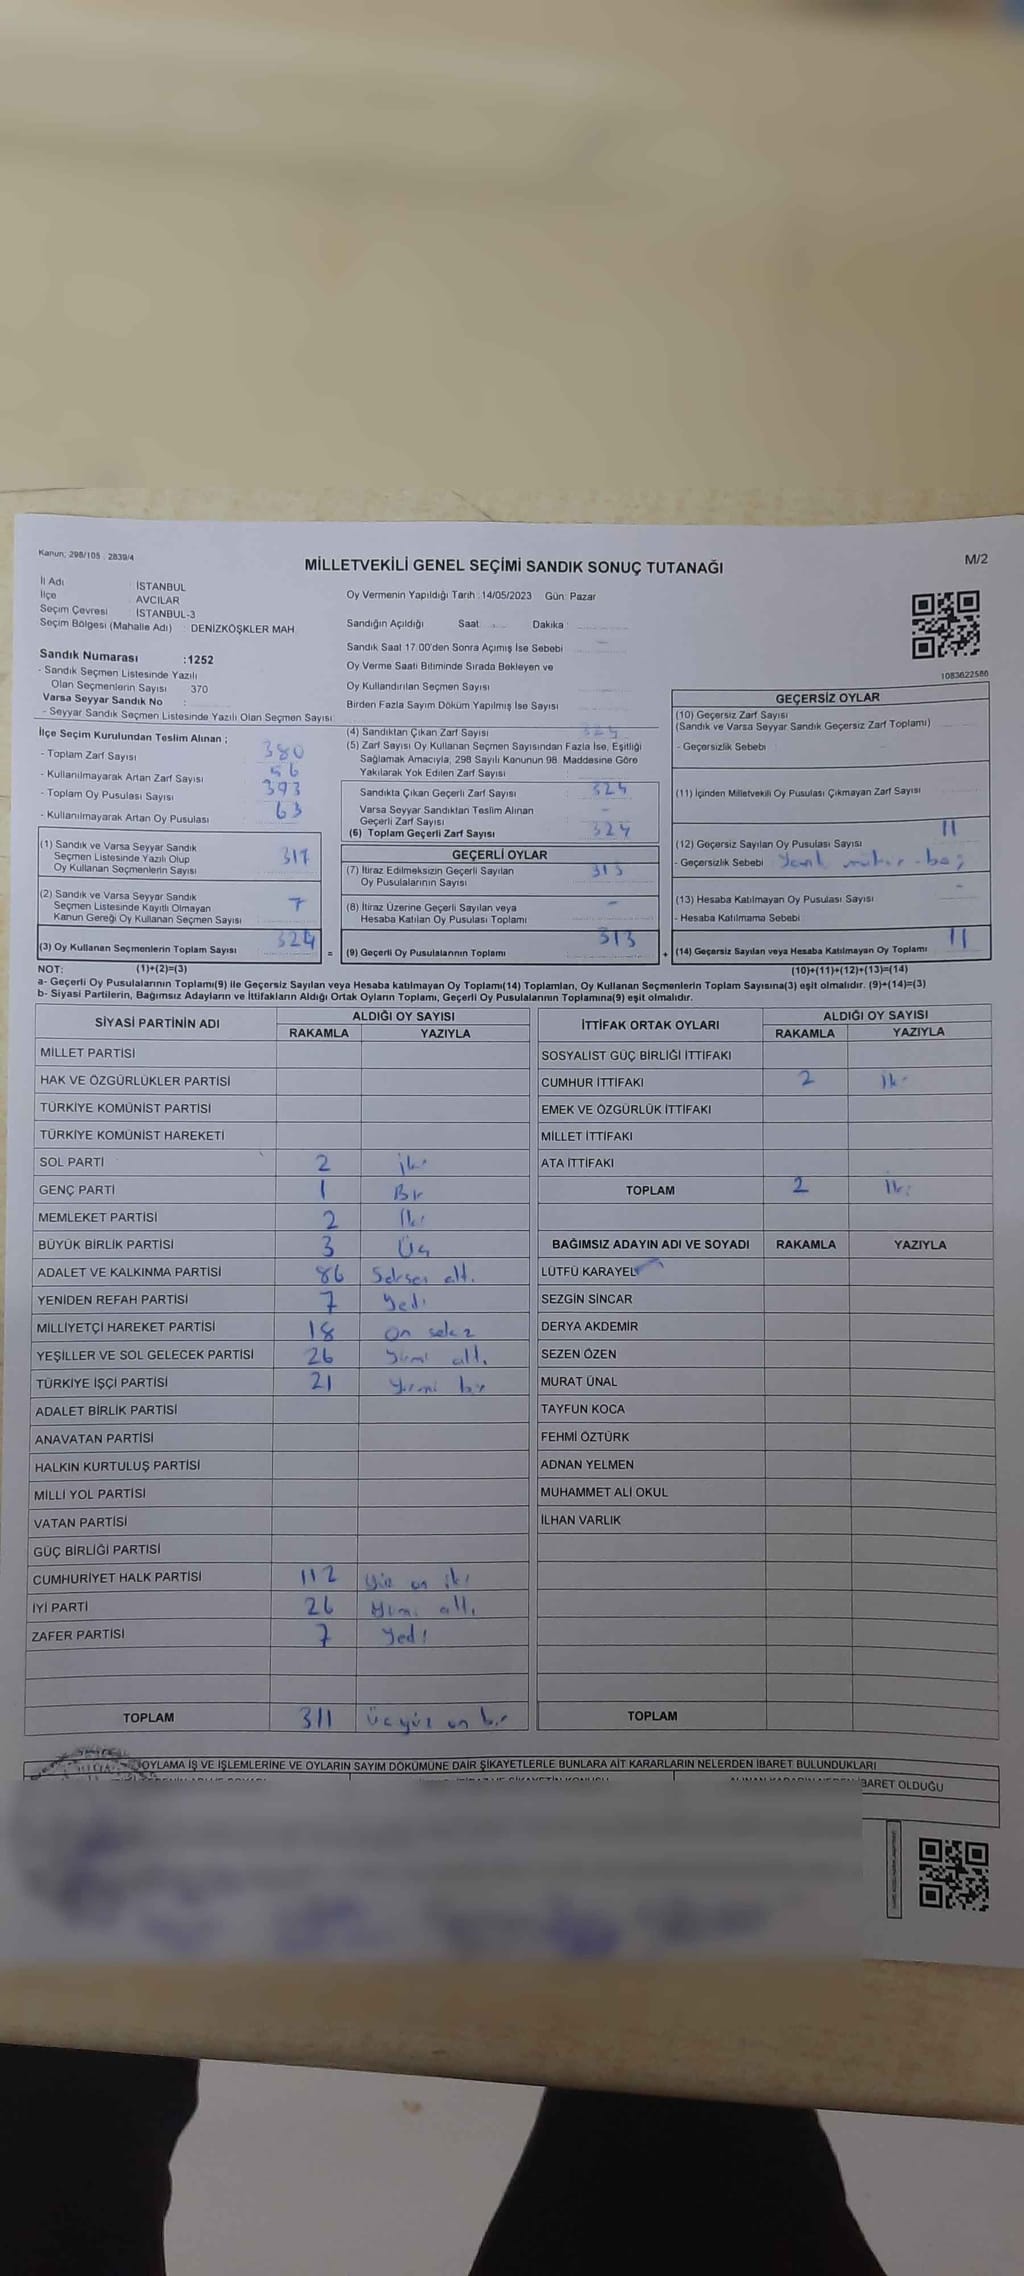 Kanun; 298/105 - 2839/4
MİLLETVEKİLİ GENEL SEÇİMİ SANDIK SONUÇ TUTANAĞI
M/2
İl Adı : İSTANBUL
İlçe : AVCILAR
Seçim Çevresi : İSTANBUL-3
Seçim Bölgesi (Mahalle Adı) : DENİZKÖŞKLER MAH.
Sandık Numarası :1252
- Sandık Seçmen Listesinde Yazılı
Olan Seçmenlerin Sayısı 370
Varsa Seyyar Sandık No :
- Seyyar Sandık Seçmen Listesinde Yazılı Olan Seçmen Sayısı:
Oy Vermenin Yapıldığı Tarih :14/05/2023 Gün: Pazar
Sandığın Açıldığı Saat: Dakika:
Sandık Saat 17:00'den Sonra Açımış İse Sebebi
Oy Verme Saati Bitiminde Sırada Bekleyen ve
Oy Kullandırılan Seçmen Sayısı
Birden Fazla Sayım Döküm Yapılmış İse Sayısı
1083622586
İlçe Seçim Kurulundan Teslim Alınan ;
- Toplam Zarf Sayısı 380
- Kullanılmayarak Artan Zarf Sayısı 56
- Toplam Oy Pusulası Sayısı 393
- Kullanılmayarak Artan Oy Pusulası 63
(1) Sandık ve Varsa Seyyar Sandık
Seçmen Listesinde Yazılı Olup
Oy Kullanan Seçmenlerin Sayısı 317
(2) Sandık ve Varsa Seyyar Sandık
Seçmen Listesinde Kayıtlı Olmayan
Kanun Gereği Oy Kullanan Seçmen Sayısı 7
(3) Oy Kullanan Seçmenlerin Toplam Sayısı 324
(4) Sandıktan Çıkan Zarf Sayısı 324
(5) Zarf Sayısı Oy Kullanan Seçmen Sayısından Fazla İse, Eşitliği
Sağlamak Amacıyla, 298 Sayılı Kanunun 98. Maddesine Göre
Yakılarak Yok Edilen Zarf Sayısı
Sandıkta Çıkan Geçerli Zarf Sayısı : 324
Varsa Seyyar Sandıktan Teslim Alınan
Geçerli Zarf Sayısı : -
(6) Toplam Geçerli Zarf Sayısı 324
GEÇERLİ OYLAR
(7) İtiraz Edilmeksizin Geçerli Sayılan
Oy Pusulalarının Sayısı 313
(8) İtiraz Üzerine Geçerli Sayılan veya
Hesaba Katılan Oy Pusulası Toplamı -
= (9) Geçerli Oy Pusulalarının Toplamı 313
GEÇERSİZ OYLAR
(10) Geçersiz Zarf Sayısı
(Sandık ve Varsa Seyyar Sandık Geçersiz Zarf Toplamı)
- Geçersizlik Sebebi
(11) İçinden Milletvekili Oy Pusulası Çıkmayan Zarf Sayısı
(12) Geçersiz Sayılan Oy Pusulası Sayısı 11
- Geçersizlik Sebebi
(13) Hesaba Katılmayan Oy Pusulası Sayısı -
- Hesaba Katılmama Sebebi
+ (14) Geçersiz Sayılan veya Hesaba Katılmayan Oy Toplamı 11
NOT: (1)+(2)=(3)
(10)+(11)+(12)+(13)=(14)
a- Geçerli Oy Pusulalarının Toplamı(9) ile Geçersiz Sayılan veya Hesaba katılmayan Oy Toplamı(14) Toplamları, Oy Kullanan Seçmenlerin Toplam Sayısına(3) eşit olmalıdır. (9)+(14)=(3)
b- Siyasi Partilerin, Bağımsız Adayların ve İttifakların Aldığı Ortak Oyların Toplamı, Geçerli Oy Pusulalarının Toplamına(9) eşit olmalıdır.
SİYASİ PARTİNİN ADI ALDIĞI OY SAYISI
RAKAMLA YAZIYLA
MİLLET PARTİSİ
HAK VE ÖZGÜRLÜKLER PARTİSİ
TÜRKİYE KOMÜNİST PARTİSİ
TÜRKİYE KOMÜNİST HAREKETİ
SOL PARTİ 2 iki
GENÇ PARTİ 1 Bir
MEMLEKET PARTİSİ 2 İki
BÜYÜK BİRLİK PARTİSİ 3 Üç
ADALET VE KALKINMA PARTİSİ 86 Seksen altı
YENİDEN REFAH PARTİSİ 7 Yedi
MİLLİYETÇİ HAREKET PARTİSİ 18 on sekiz
YEŞİLLER VE SOL GELECEK PARTİSİ 26 Yirmi altı
TÜRKİYE İŞÇİ PARTİSİ 21 Yirmi bir
ADALET BİRLİK PARTİSİ
ANAVATAN PARTİSİ
HALKIN KURTULUŞ PARTİSİ
MİLLİ YOL PARTİSİ
VATAN PARTİSİ
GÜÇ BİRLİĞİ PARTİSİ
CUMHURİYET HALK PARTİSİ 112 Yüz on iki
İYİ PARTİ 26 Yirmi altı
ZAFER PARTİSİ 7 Yedi
TOPLAM 311 Üçyüz on bir
İTTİFAK ORTAK OYLARI ALDIĞI OY SAYISI
RAKAMLA YAZIYLA
SOSYALİST GÜÇ BİRLİĞİ İTTİFAKI
CUMHUR İTTİFAKI 2 İki
EMEK VE ÖZGÜRLÜK İTTİFAKI
MİLLET İTTİFAKI
ATA İTTİFAKI
TOPLAM 2 İki
BAĞIMSIZ ADAYIN ADI VE SOYADI RAKAMLA YAZIYLA
LÜTFÜ KARAYEL
SEZGİN SİNCAR
DERYA AKDEMİR
SEZEN ÖZEN
MURAT ÜNAL
TAYFUN KOCA
FEHMİ ÖZTÜRK
ADNAN YELMEN
MUHAMMET ALİ OKUL
İLHAN VARLIK
TOPLAM
OYLAMA İŞ VE İŞLEMLERİNE VE OYLARIN SAYIM DÖKÜMÜNE DAİR ŞİKAYETLERLE BUNLARA AİT KARARLARIN NELERDEN İBARET BULUNDUKLARI
İBARET OLDUĞU